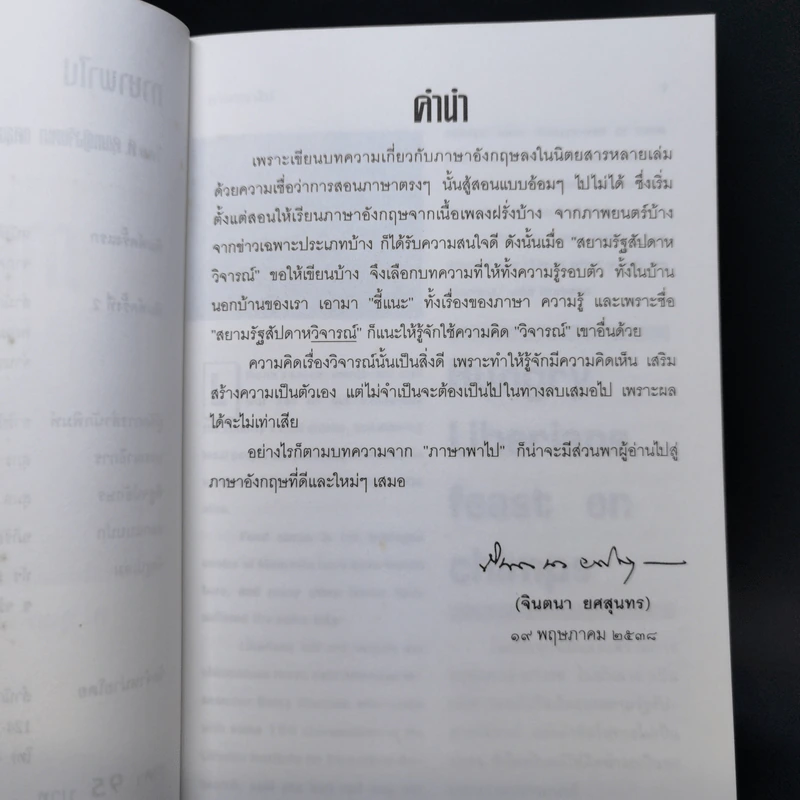 คำนำ
เพราะเขียนบทความเกี่ยวกับภาษาอังกฤษลงในนิตยสารหลายเล่ม
ด้วยความเชื่อว่าการสอนภาษาตรงๆ นั้นสู้สอนแบบอ้อมๆ ไปไม่ได้ ซึ่งเริ่ม
ตั้งแต่สอนให้เรียนภาษาอังกฤษจากเนื้อเพลงฝรั่งบ้าง จากภาพยนตร์บ้าง
จากข่าวเฉพาะประเภทบ้าง ก็ได้รับความสนใจดี ดังนั้นเมื่อ "สยามรัฐสัปดาห
วิจารณ์" ขอให้เขียนบ้าง จึงเลือกบทความที่ให้ทั้งความรู้รอบตัว ทั้งในบ้าน
นอกบ้านของเรา เอามา "ชี้แนะ" ทั้งเรื่องของภาษา ความรู้ และเพราะชื่อ
"สยามรัฐสัปดาหวิจารณ์" ก็แนะให้รู้จักใช้ความคิด "วิจารณ์" เขาอื่นด้วย
ความคิดเรื่องวิจารณ์นั้นเป็นสิ่งดี เพราะทำให้รู้จักมีความคิดเห็น เสริม
สร้างความเป็นตัวเอง แต่ไม่จำเป็นจะต้องเป็นไปในทางลบเสมอไป เพราะผล
ได้จะไม่เท่าเสีย
อย่างไรก็ตามบทความจาก "ภาษาพาไป" ก็น่าจะมีส่วนพาผู้อ่านไปสู่
ภาษาอังกฤษที่ดีและใหม่ๆ เสมอ
(จินตนา ยศสุนทร)
๑๙ พฤษภาคม ๒๕๓๘